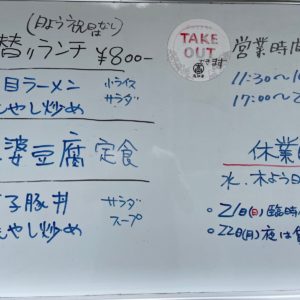 (日よう祝日なし)
替りランチ ¥800-
目ラーメン 小ライス
もやし炒め サラダ
婆豆腐 定食
子豚丼 サラダ
もやし炒め スープ
TAKE
OUT
できます
営業時間
11:30〜1
17:00〜2
休業
水.木よう
21(日)臨時
22(月)夜は